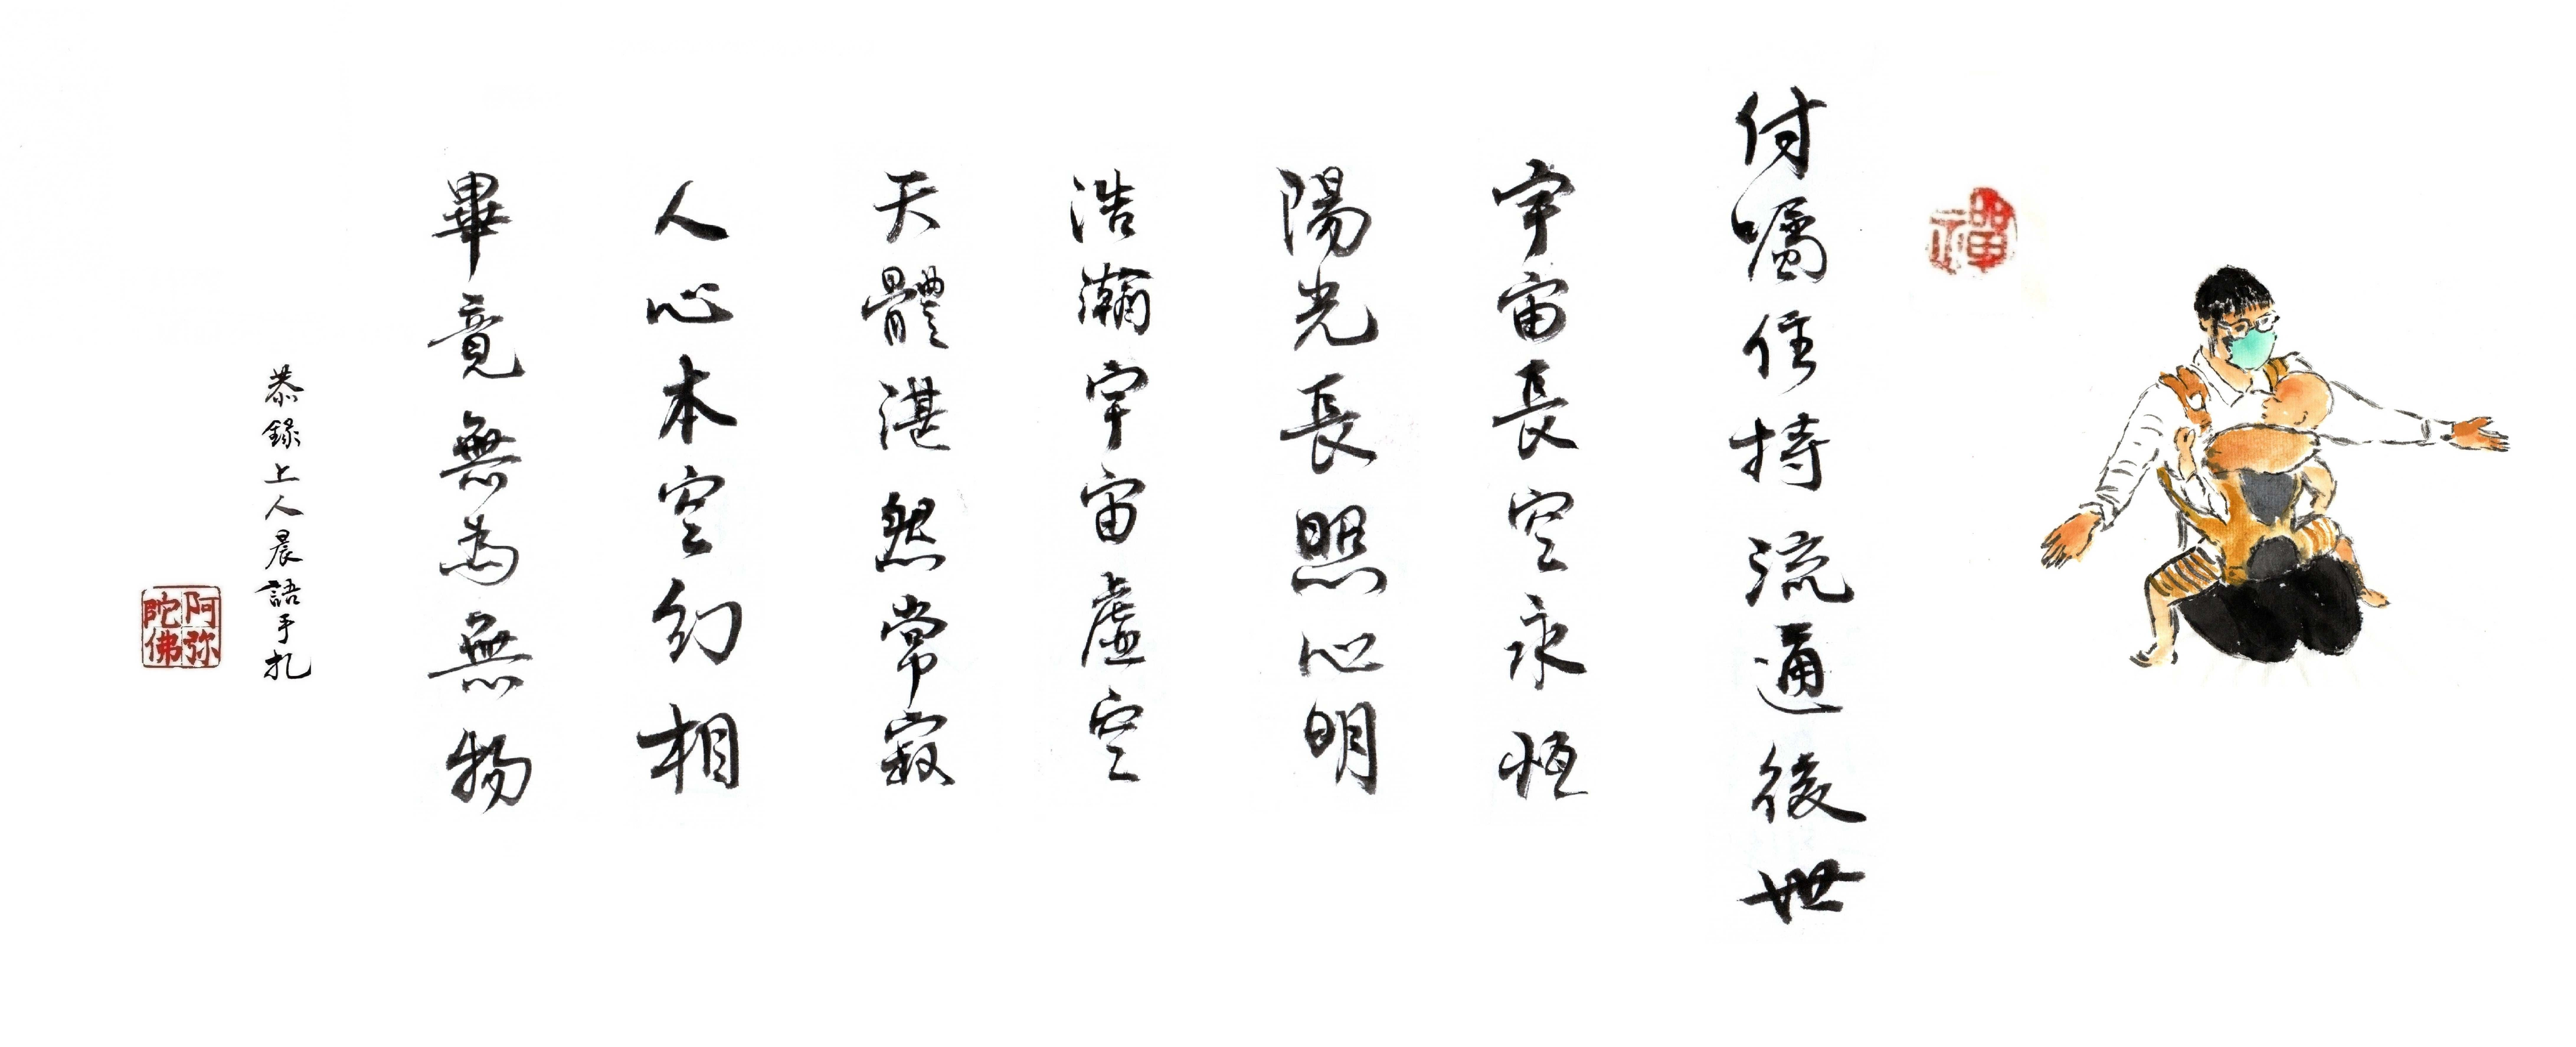 禪
付囑住持流通後世
宇宙長空永恆
陽光長照心明
浩瀚宇宙虛空
天體湛然常寂
人心本空幻相
畢竟無為無物
恭錄上人晨語手札
阿弥陀佛